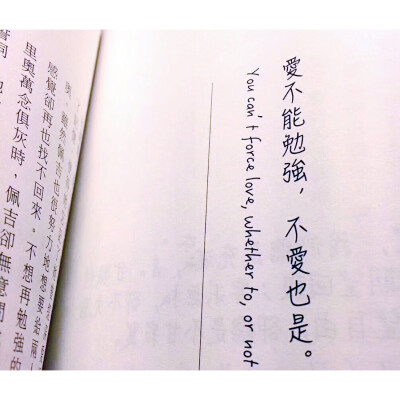 愛不能勉強，不愛也是。
You can't force love, whether to, or not
雖然佩吉也很努力地想要
感覺卻再也找不回來。不想再勉強的
里奧萬念俱灰時，佩吉卻無意間